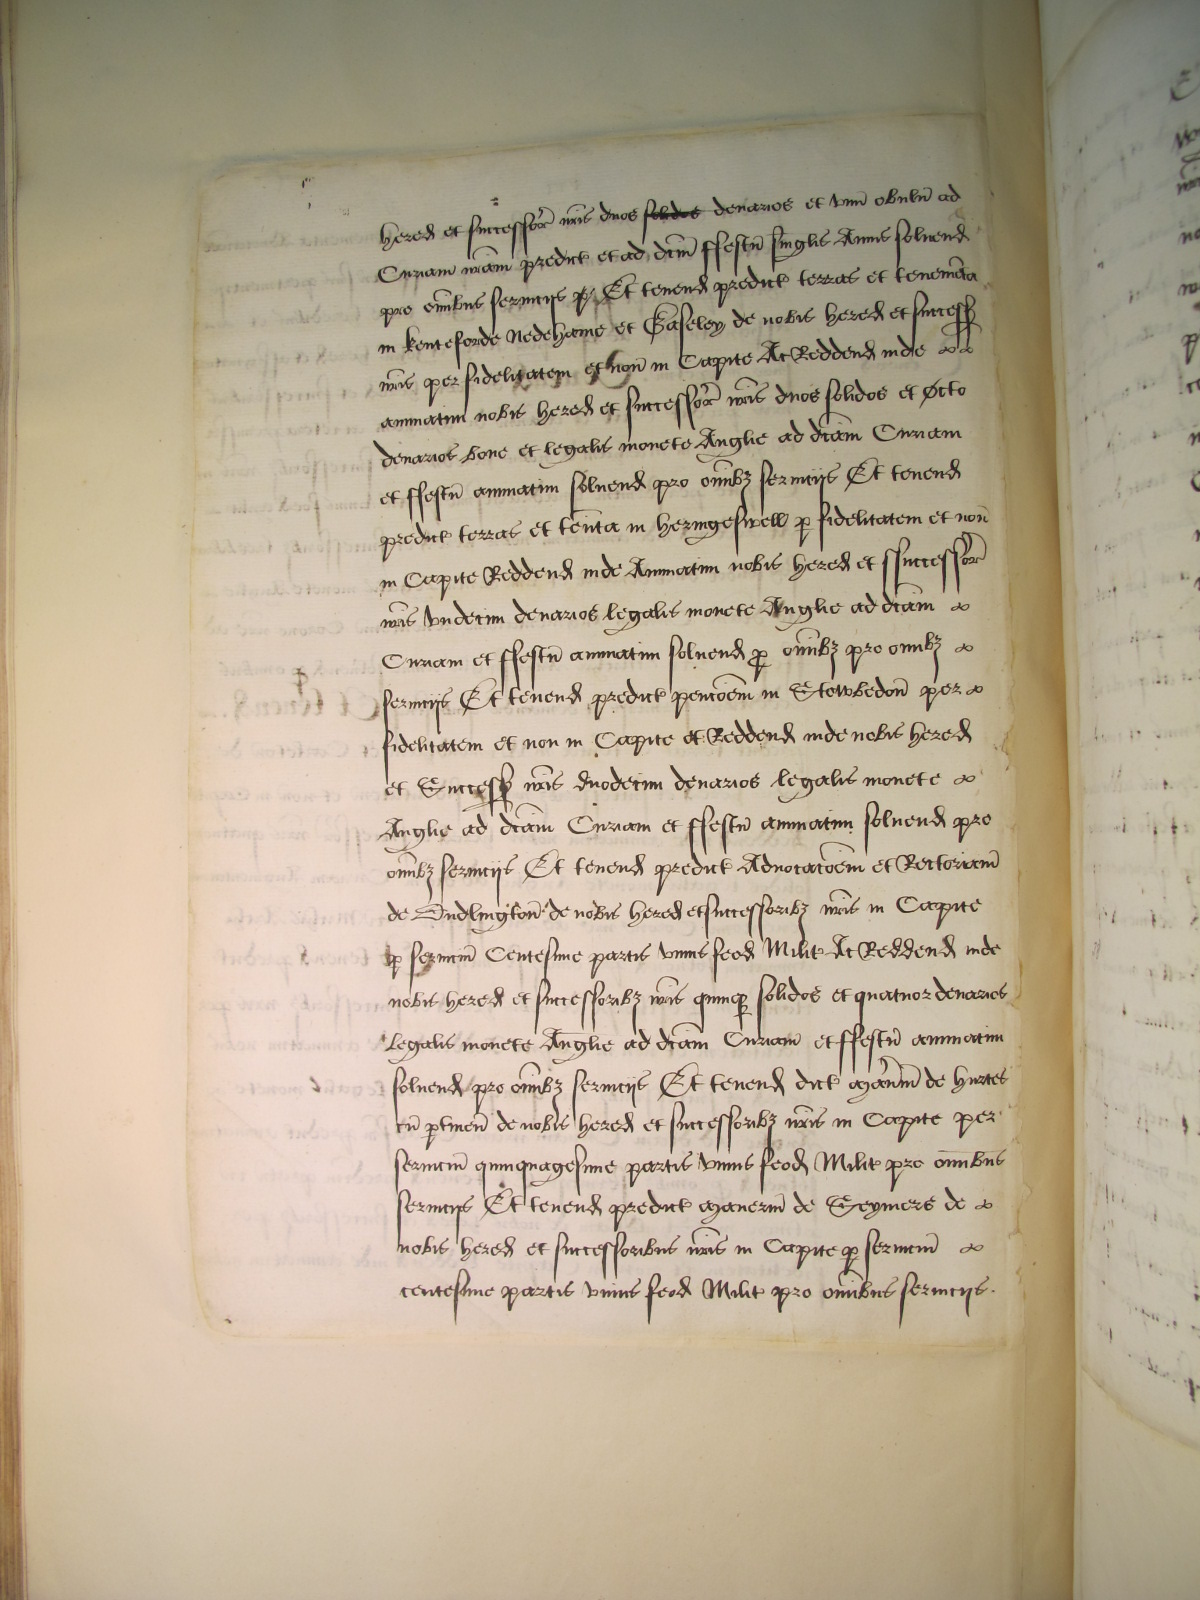 hered et successor nris duos solidos denarios et vnu obulu ad
Curiam nram predict et ad dcm ffestu singlis Annis soluend
pro omibus seruicijs p Et tenend predict terras et tenemta
in kenteforde Nedehame et Gaseley de nobis hered et success
nris per fidelitatem et non in Capite Ac Reddend inde
annuatim nobis hered et successor nris duos solidos et octo
denarios bone et legalis monete Anglie ad dcam Curiam
et ffestu annuatim soluend pro omibz seruicijs Et tenend
predict terras et tenta in heringeswell p fidelitatem et non
in Capite Reddend inde Annuatim nobis hered et ssuccessor
nris vndecim denarios legalis monete Anglie ad dcam
Curiam et ffestu annuatim soluend p omibz pro omibz
seruicijs Et tenend predict pencoem in Stowbedon per
fidelitatem et non in Capite et Reddend inde nobis hered
et Success nris duodecim denarios legalis monete
Anglie ad dcam Curiam et ffestu annuatim soluend pro
omibz seruicijs Et tenend predict Aduocacoem et Rectoriam
de Dudlington de nobis hered et successoribz nris in Capite
p seruiciu Centesime partis vnius feod Milit Ac Reddend inde
nobis hered et successoribz nris quinqz solidos et quatuor denarios
legalis monete Anglie ad dcam Curiam et ffestu annuatim
soluend pro omibz seruicijs Et tenend dict maniu de hurtes
cu ptinen de nobis hered et successoribz nris in Capite per
seruiciu quinquagesime partis vnius feod Milit pro omibus
seruicijs Et tenend predict maneriu de Seymers de
nobis hered et successoribus nris in Capite p seruiciu
centesime partis vnius feod Milit pro omibus seruicijs.